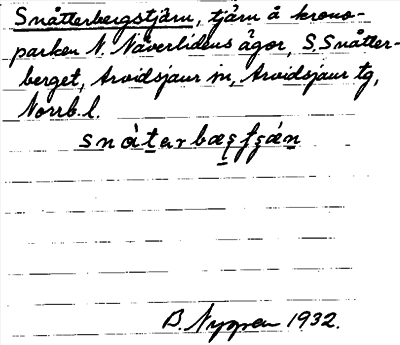 Snåtterbergstjärn, tjärn å krono-
parken N. Näverlidens ägor, S. Snåtter-
berget, Arvidsjaur sn, Arvidsjaur tg,
Norrb. l.
snåterbæʂʈʂæ̀n
B. Nygren 1932.